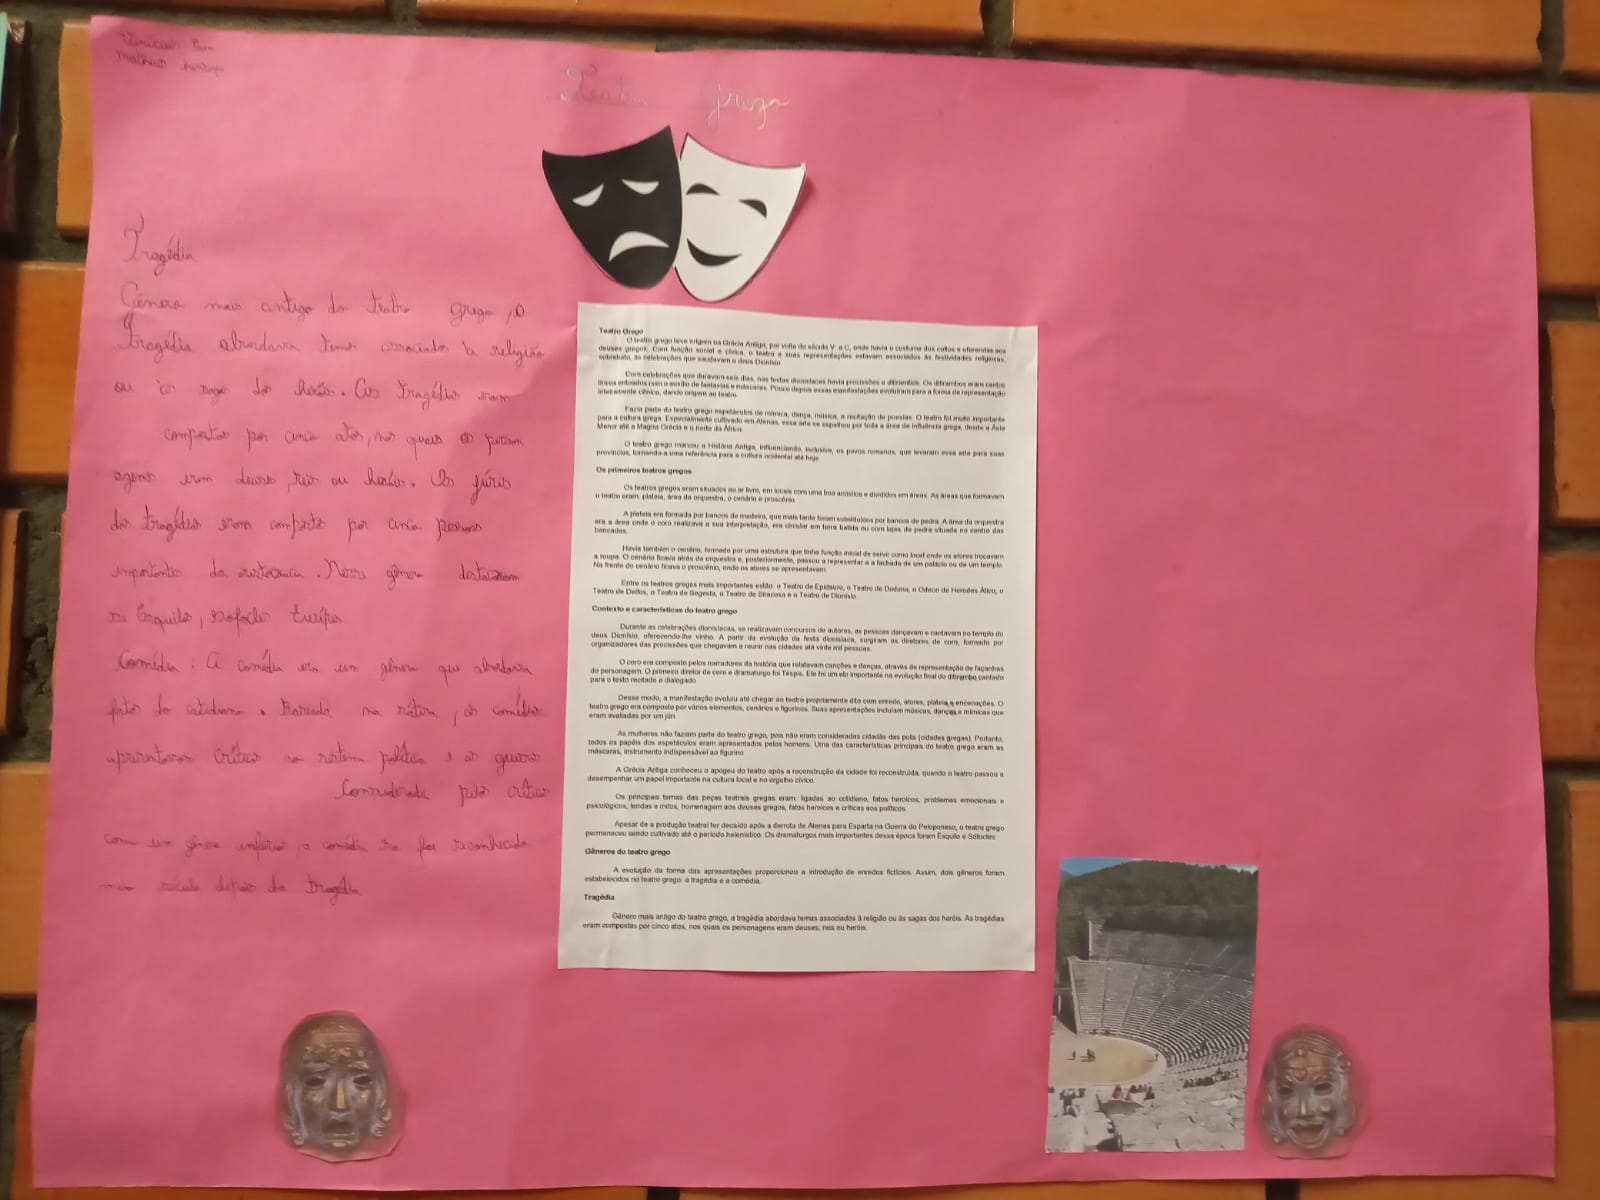 Teatro grego
Tragédia
Gênero mais antigo do teatro grego, a
tragédia abordava temas associados à religião
ou às sagas dos heróis. As tragédias eram
compostas por cinco atos, nos quais os person
agens eram deuses, reis ou heróis. Os júris
das tragédias eram composta por cinco pessoas
importantes da aristocracia. Nesse gênero destacaram
no Ésquilo, Sófocles Eurípes
Comédia: A comédia era um gênero que abordava
fatos do cotidiano. Baseada na sátira, as comédias
apresentavam críticas ao sistema política e as guerras
Considerada pelos críticos
como um gênero inferior, a comédia só foi reconhecida
meio século depois da tragédia
Teatro Grego
O teatro grego teve origem na Grécia Antiga, por volta do século V a.C, onde havia o costume dos cultos e oferendas aos
deuses gregos. Com função social e cívica, o teatro e suas representações estavam associados às festividades religiosas,
sobretudo, às celebrações que saudavam o deus Dionísio.
Com celebrações que duravam seis dias, nas festas dionisíacas havia procissões e ditirambos. Os ditirambos eram cantos
líricos entoados com o auxílio de fantasias e máscaras. Pouco depois essas manifestações evoluíram para a forma de representação
inteiramente cênica, dando origem ao teatro.
Fazia parte do teatro grego espetáculos de mímica, dança, música, e recitação de poesias. O teatro foi muito importante
para a cultura grega. Especialmente cultivado em Atenas, essa arte se espalhou por toda a área de influência grega, desde a Ásia
Menor até a Magna Grécia e o norte da África.
O teatro grego marcou a História Antiga, influenciando, inclusive, os povos romanos, que levaram essa arte para suas
províncias, tornando-a uma referência para a cultura ocidental até hoje.
Os primeiros teatros gregos
Os teatros gregos eram situados ao ar livre, em locais com uma boa acústica e divididos em áreas. As áreas que formavam
o teatro eram: plateia, área da orquestra, o cenário e proscênio.
A plateia era formada por bancos de madeira, que mais tarde foram substituídos por bancos de pedra. A área da orquestra
era a área onde o coro realizava a sua interpretação, era circular em terra batida ou com lajes de pedra situada no centro das
bancadas.
Havia também o cenário, formado por uma estrutura que tinha função inicial de servir como local onde os atores trocavam
a roupa. O cenário ficava atrás da orquestra e, posteriormente, passou a representar a a fachada de um palácio ou de um templo.
Na frente do cenário ficava o proscênio, onde os atores se apresentavam.
Entre os teatros gregos mais importantes estão: o Teatro de Epidauro, o Teatro de Dodona, o Odeon de Herodes Ático, o
Teatro de Delfos, o Teatro de Segesta, o Teatro de Siracusa e o Teatro de Dionísio.
Contexto e características do teatro grego
Durante as celebrações dionisíacas, se realizavam concursos de autores, as pessoas dançavam e cantavam no templo do
deus Dionísio, oferecendo-lhe vinho. A partir da evolução da festa dionisíaca, surgiram os diretores de coro, formado por
organizadores das procissões que chegavam a reunir nas cidades até vinte mil pessoas.
O coro era composto pelos narradores da história que relatavam canções e danças, através da representação de façanhas
do personagem. O primeiro diretor de coro e dramaturgo foi Téspis. Ele foi um elo importante na evolução final do ditirambo cantado
para o texto recitado e dialogado.
Desse modo, a manifestação evoluiu até chegar ao teatro propriamente dito com enredo, atores, plateia e encenações. O
teatro grego era composto por vários elementos, cenários e figurinos. Suas apresentações incluíam músicas, danças e mímicas que
eram avaliadas por um júri.
As mulheres não faziam parte do teatro grego, pois não eram consideradas cidadãs das polis (cidades gregas). Portanto,
todos os papéis dos espetáculos eram apresentados pelos homens. Uma das características principais do teatro grego eram as
máscaras, instrumento indispensável ao figurino.
A Grécia Antiga conheceu o apogeu do teatro após a reconstrução da cidade foi reconstruída, quando o teatro passou a
desempenhar um papel importante na cultura local e no orgulho cívico.
Os principais temas das peças teatrais gregas eram: ligadas ao cotidiano, fatos heroicos, problemas emocionais e
psicológicos, lendas e mitos, homenagem aos deuses gregos, fatos heroicos e críticas aos políticos.
Apesar de a produção teatral ter decaído após a derrota de Atenas para Esparta na Guerra do Peloponeso, o teatro grego
permaneceu sendo cultivado até o período helenístico. Os dramaturgos mais importantes dessa época foram Ésquilo e Sófocles.
Gêneros do teatro grego
A evolução da forma das apresentações proporcionou a introdução de enredos fictícios. Assim, dois gêneros foram
estabelecidos no teatro grego: a tragédia e a comédia.
Tragédia
Gênero mais antigo do teatro grego, a tragédia abordava temas associados à religião ou às sagas dos heróis. As tragédias
eram compostas por cinco atos, nos quais os personagens eram deuses, reis ou heróis.